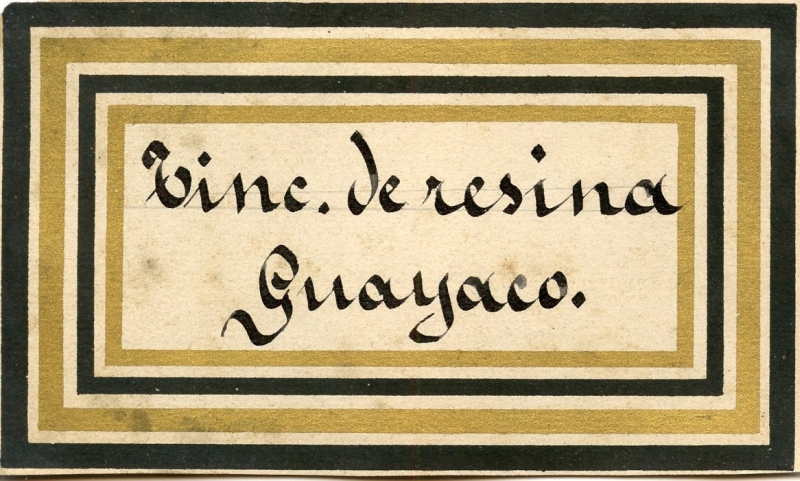 Tinc. de resina
Guayaco.